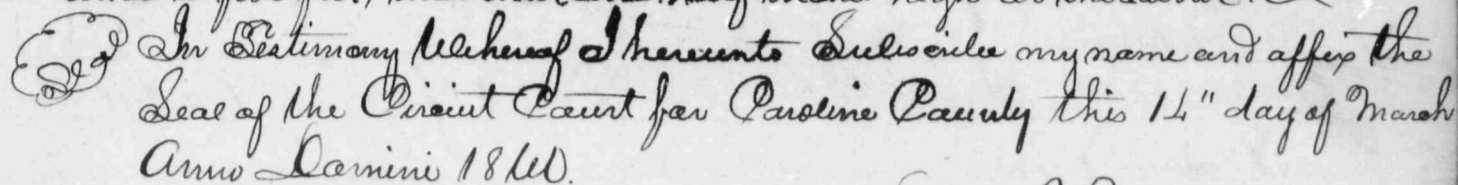 Seal In Testimony Whereof I hereunto Subscribe my name and affix the
Seal of the Circuit Court for Caroline County this 14" day of March
Anno Domini